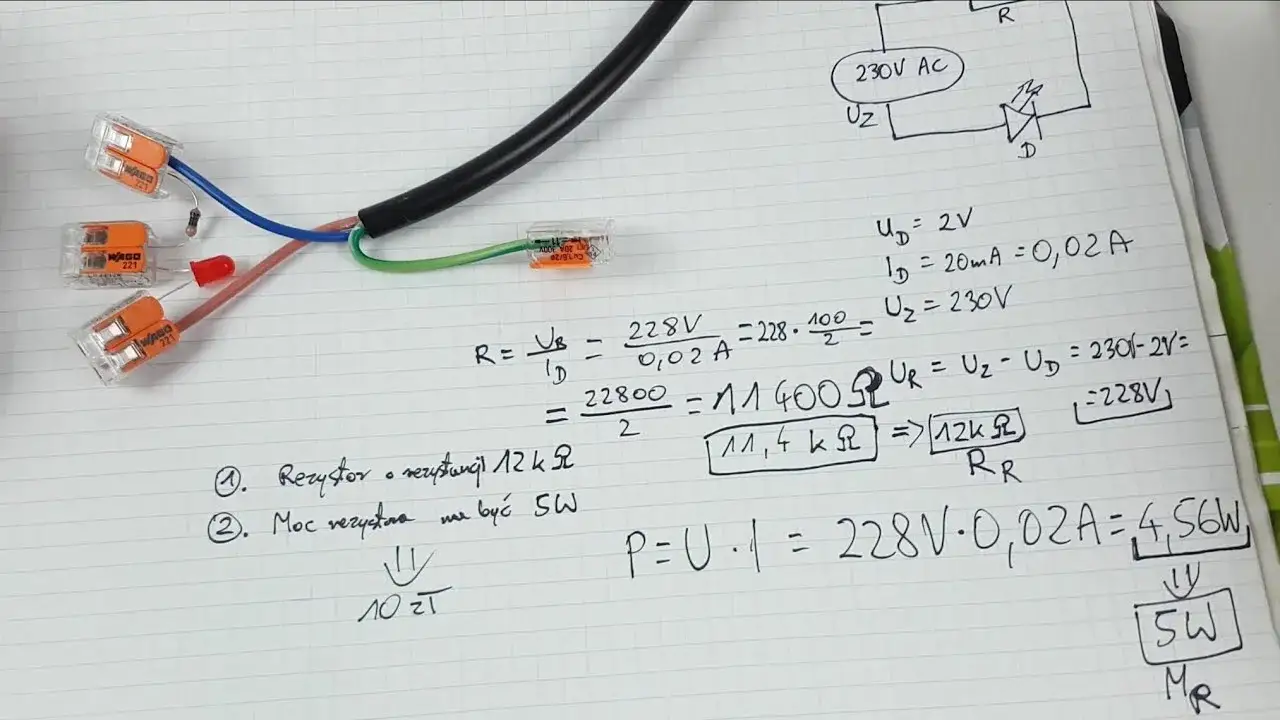 R
230V AC
UZ
D
WAGO
221
WAGO
221
221
U_D = 2V
I_D = 20mA = 0,02A
U_Z = 230V
R = U_R / I_D = 228V / 0,02A = 228 · 100/2 =
= 22800/2 = 11400Ω
U_R = U_Z - U_D = 230V-2V=
=228V
11,4 kΩ => 12kΩ
R_R
①. Rezystor o rezystancji 12kΩ
②. Moc rezystora ma być 5W
10 zł
P = U · I = 228V · 0,02A = 4,56W
5W
M_R